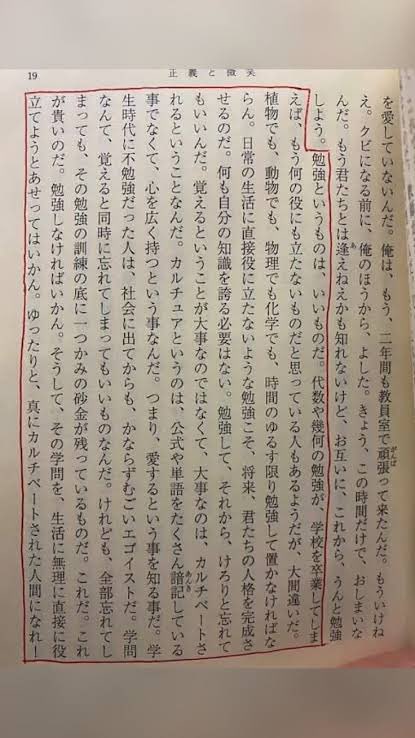 19
正義と微笑
を愛していないんだ。俺は、もう、二年間も教員室で頑張って来たんだ。もういけね
え。クビになる前に、俺のほうから、よした。きょう、この時間だけで、おしまいな
んだ。もう君たちとは逢えねえかも知れないけど、お互いに、これから、うんと勉強
しよう。勉強というものは、いいものだ。代数や幾何の勉強が、学校を卒業してしま
えば、もう何の役にも立たないものだと思っている人もあるようだが、大間違いだ。
植物でも、動物でも、物理でも化学でも、時間のゆるす限り勉強して置かなければな
らん。日常の生活に直接役に立たないような勉強こそ、将来、君たちの人格を完成さ
せるのだ。何も自分の知識を誇る必要はない。勉強して、それから、けろりと忘れて
もいいんだ。覚えるということが大事なのではなくて、大事なのは、カルチベートさ
れるということなんだ。カルチュアというのは、公式や単語をたくさん暗記している
事でなくて、心を広く持つという事なんだ。つまり、愛するという事を知る事だ。学
生時代に不勉強だった人は、社会に出てからも、かならずむごいエゴイストだ。学問
なんて、覚えると同時に忘れてしまってもいいものなんだ。けれども、全部忘れてし
まっても、その勉強の訓練の底に一つかみの砂金が残っているものだ。これだ。これ
が貴いのだ。勉強しなければいかん。そうして、その学問を、生活に無理に直接に役
立てようとあせってはいかん。ゆったりと、真にカルチベートされた人間になれ！